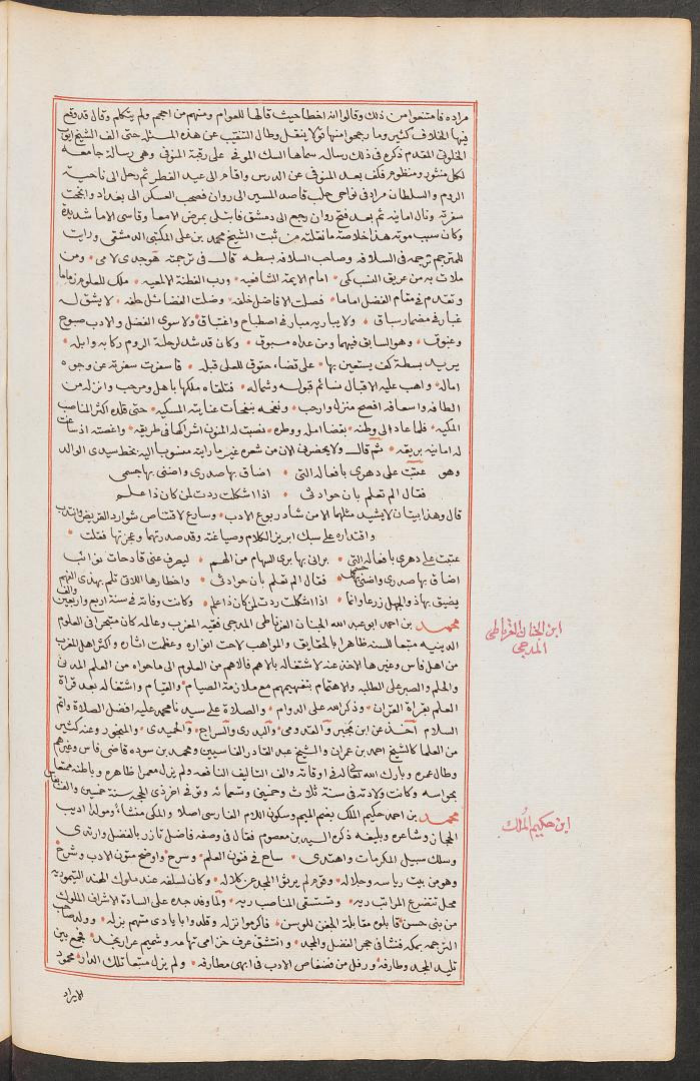 مراده فامتنعوا من ذلك وقالوا انه اخطا حيث قالها للعوام ومنهم من احجم ولم يتكلم وقال قد وقع
فيها الخلاف كثير وما رجحوا منها قولا ينقل وطال التنقيب عن هذه المسئلة حتى الف الشيخ ايوب
الخلوتي المقدم ذكره في ذلك رساله سماها السك الموفي على رقبة المزني وهي رسالة جامعه
لكل منثور ومنظوم فلف بعد المزني عن الدرس واقام الى عيد الفطر ثم رحل الى ناحية
الروم والسلطان مراد في نواحي حلب قاصد المسير الى روان فصحب العسكر الى بغداد وانجحت
سفرته ونال امانيه ثم بعد فتح روان رجع الى دمشق فابتلى بمرض الامعا وقاسى الاما شديدة
وكان سبب موته هذا خلاصة ما نقلته من ثبت الشيخ محمد بن على المكتبى الدمشقى ورايت
للمترجم ترجمه في السلافه وصاحب السلافه بسطه قال في ترجمته هو جدى لامى ومن
ملات به من عريق النسب كمى امام الايمة الشافعيه ورب الفطنة الالمعيه ملك للعلوم زماما
وتقدم في مقام الفضل اماما فصلت الافاضل خلفه وضلت الفضائل حلفه لا يشق له
غبار في مضمار سباق ولا يباريه مبار في اصطباح واغتباق ولا سوى الفضل والادب صبوح
وغبوق وهو السابق فيهما ومن عداه مسبوق وكان قد شد لرحلة الروم ركابه وابله
يريد بسطة كف يستعين بها على قضاء حقوق للعلى قبله فاسفرت سفرته عن وجوه
اماله واهب عليه الاقبال نسائم قبوله وشماله فتلقاه ملكها باهل ومرحب وانزله من
الطافه واسعافه افسح منزل وارحب ونفحه بنفحات عنايته المسكيه حتى قلده اكثر المناصب
المكيه فلما عاد الى وطنه بقضا امله ووطره نصبت له المنون اشراكها في طريقه واغصته اذ ساغت
له امانيه بريقه ثم قال ولا يحضرنى الان من شعره غير ما رايته منسوبا اليه بخط سيدى الوالد
وهو عتبت على دهرى بافعاله التى اضاق بها صدرى واضنى بها جسمى
فقال الم تعلم بان حوادثى اذا اشكلت ردت لمن كان ذا علم
قال وهذا بيتان لا يشيد مثلهما الا من شاد ربوع الادب وسارع لاقتناص شوارد القريض وانتدب
واقتداره على سبك ابريز الكلام وصياغته وقد صدرتهما وعجزتهما فقلت
عتبت على دهرى بافعاله التى برانى بها برى السهام من الهم ليصرف عنى فادحات نوائب
اضاق بها صدرى واضنى جسمى فقال الم تعلم بان حوادثى واخطارها اللاتى تلم بذى الفهم
يضيق بها ذو الجهل ذرعا وانما اذا اشكلت ردت لمن كان ذا علم وكانت وفاته في سنة اربع واربعين والف
محمد بن احمد ابو عبد الله الجنان الغرناطى المدجى فقيه المغرب وعالمه كان متبحرا فى العلوم
الدينيه متبعا للسنه ظاهرا بالحقايق والمواهب لاحت انواره وعظمت اشاره واكثر اهل المغرب
من اهل فاس وغيرها الاخذ عنه لاشتغاله بالاهم فالاهم من العلوم الى ما حواه من العلم اللدنى
والحلم والصبر على الطلبه والاهتمام بتفهيمهم مع ملازمة الصيام والقيام واشتغاله بعد قراة
العلم بقراة القران وذكر الله على الدوام والصلاة على سيدنا محمد عليه افضل الصلاة واتم
السلام اخذ عن ابن مجبر والقدومى والبدرى والسراج والحميدى والمنجور وعنه كثير
من العلما كالشيخ احمد بن عمران والشيخ عبد القادر الفاسيين ومحمد بن سوده قاضى فاس وغيرهم
وطال عمره وبارك الله تعالى له في اوقاته والف التاليف النافعه ولم يزل معمرا ظاهره وباطنه ممتعا
بحواسه وكانت ولادته فى سنة ثلاث وخمسين وتسعمائه وتوفى اخر ذى الحجه سنة خمسين والف بفاس
محمد بن احمد حكيم الملك بضم الميم وسكون اللام الفارسى اصلا والمكى منشا ومولدا اديب
الحجاز وشاعره وبليغه ذكره السيد بن معصوم فقال فى وصفه فاضل تازر بالفضل وارتدى
وسلك سبيل المكرمات واهتدى ساح فى فنون العلم وسرح واوضح متون الادب وشرح
وهو من بيت رياسه وجلاله وقوم لم يرثوا المجد عن كلاله وكان لسلفه عند ملوك الهند التيموريه
محل تتضرع المراتب ربه وتستسقى المناصب ربه ولما وفد جده على السادة الاشراف الملوك
من بنى حسن قابلوه مقابلة الجفن للوسن فاكرموا نزله وقلدوا بايادى منتهم بزله وولد صاحب
الترجمه بمكه فنشا فى حجر الفضل والمجد وانتشق عرف خزامى تهامه وشميم عرار نجد فجمع بين
تليد المجد وطارفه ورفل من فضفاض الادب فى ابهى مطارفه ولم يزل متبعا تلك الدار محمود
الايراد
ابن الجنان الغرناطى
المدجى
ابن حكيم الملك